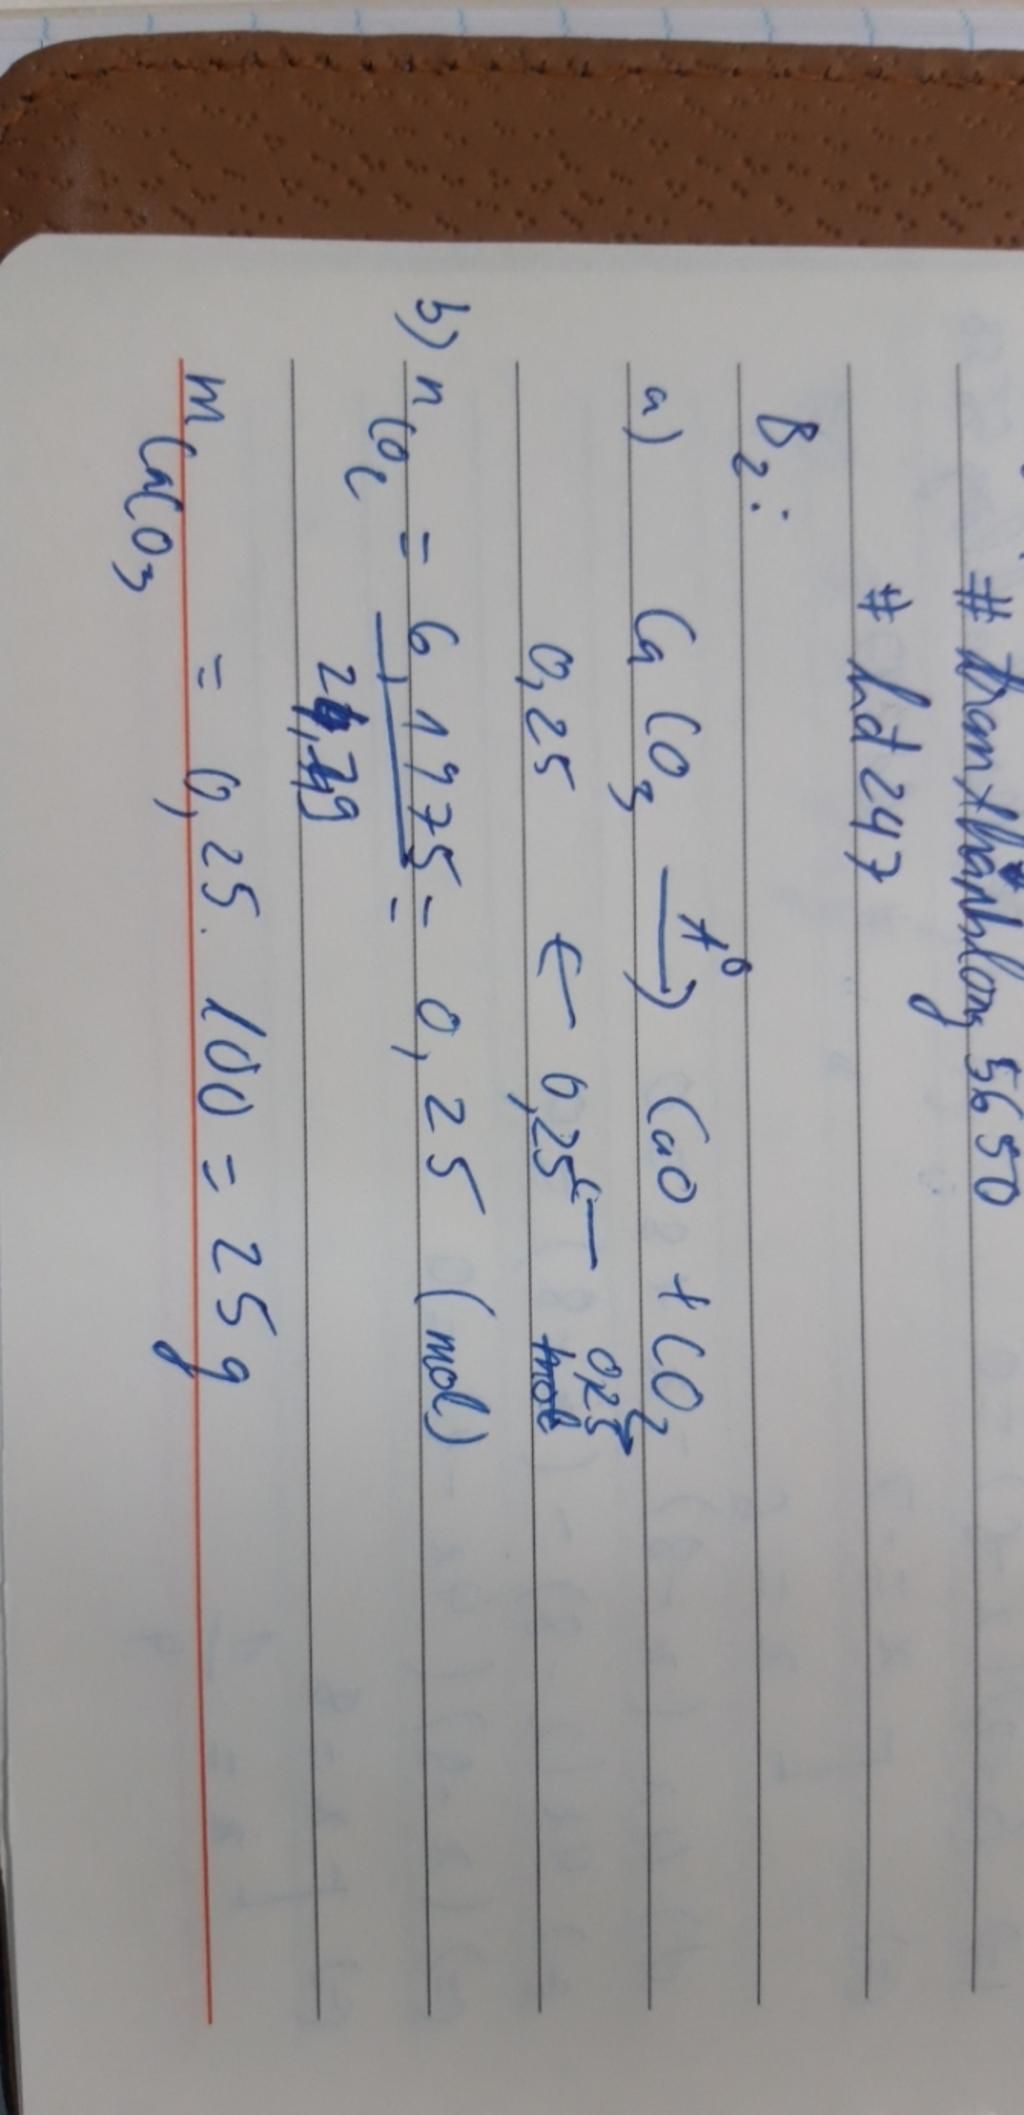 # tranthanhlong5650
# hd247
B2:
a) CaCO3 t° → CaO + CO2
0,25 ← 0,25 ← 0,25
b) nCO2 = 6,1975 / 24,79 = 0,25 (mol)
mCaCO3 = 0,25. 100 = 25 g